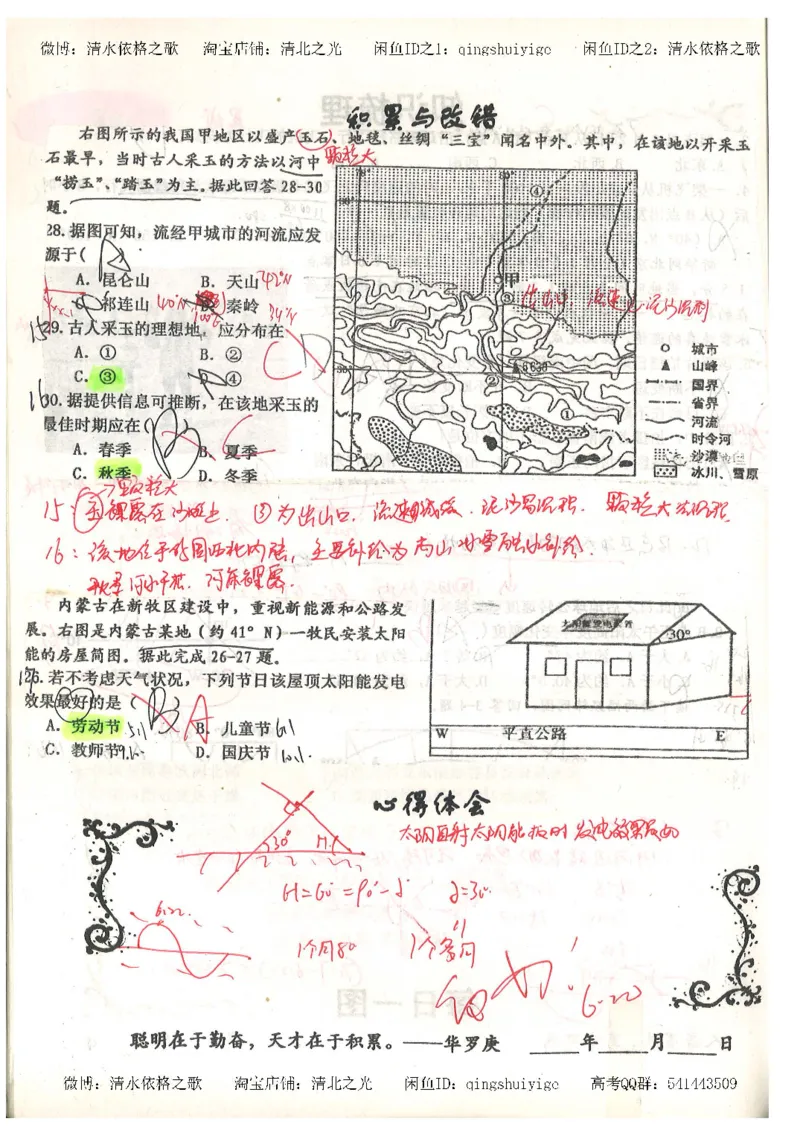 微博：清水依格之歌 淘宝店铺：清北之光 闲鱼ID之1：qingshuiyige 闲鱼ID之2：清水依格之歌
积累与改错
右图所示的我国甲地区以盛产玉石、地毯、丝绸“三宝”闻名中外。其中，在该地以开采玉
石最早，当时古人采玉的方法以河中
颗粒大
“捞玉”、“踏玉”为主。据此回答28-30
题。
28.据图可知，流经甲城市的河流应发
源于（ A
A．昆仑山 B．天山 42°N
C．祁连山 40°N D．秦岭 34°N
29.古人采玉的理想地，应分布在
A．① B．②
C．③ D．④
30.据提供信息可推断，在该地采玉的
最佳时期应在（
A．春季 B．夏季
C．秋季 D．冬季
80°
④
甲
③
②
6638
①
城市
山峰
国界
省界
河流
时令河
沙漠
冰川、雪原
颗粒大
15：玉裸露在沙地上 ③为出山口，流速减缓，泥沙易沉积，颗粒大先沉积
16：该地位于我国西北内陆，主要补给为高山冰雪融水补给
秋季河水干枯，河床裸露．
内蒙古在新牧区建设中，重视新能源和公路发
展。右图是内蒙古某地（约41°N）一牧民安装太阳
能的房屋简图。据此完成26-27题。
26.若不考虑天气状况，下列节日该屋顶太阳能发电
效果最好的是（ B A
A．劳动节 5.1 B．儿童节 6.1
C．教师节 9.10 D．国庆节 10.1
太阳能发电装置
30°
W 平直公路 E
心得体会
太阳直射太阳能板时发电效果最好
30° H
H=60°=90°-α α=30°
6.22
1个月8°
6.22
聪明在于勤奋，天才在于积累。——华罗庚 ____年____月____日
微博：清水依格之歌 淘宝店铺：清北之光 闲鱼ID：qingshuiyige 高考QQ群：541443509